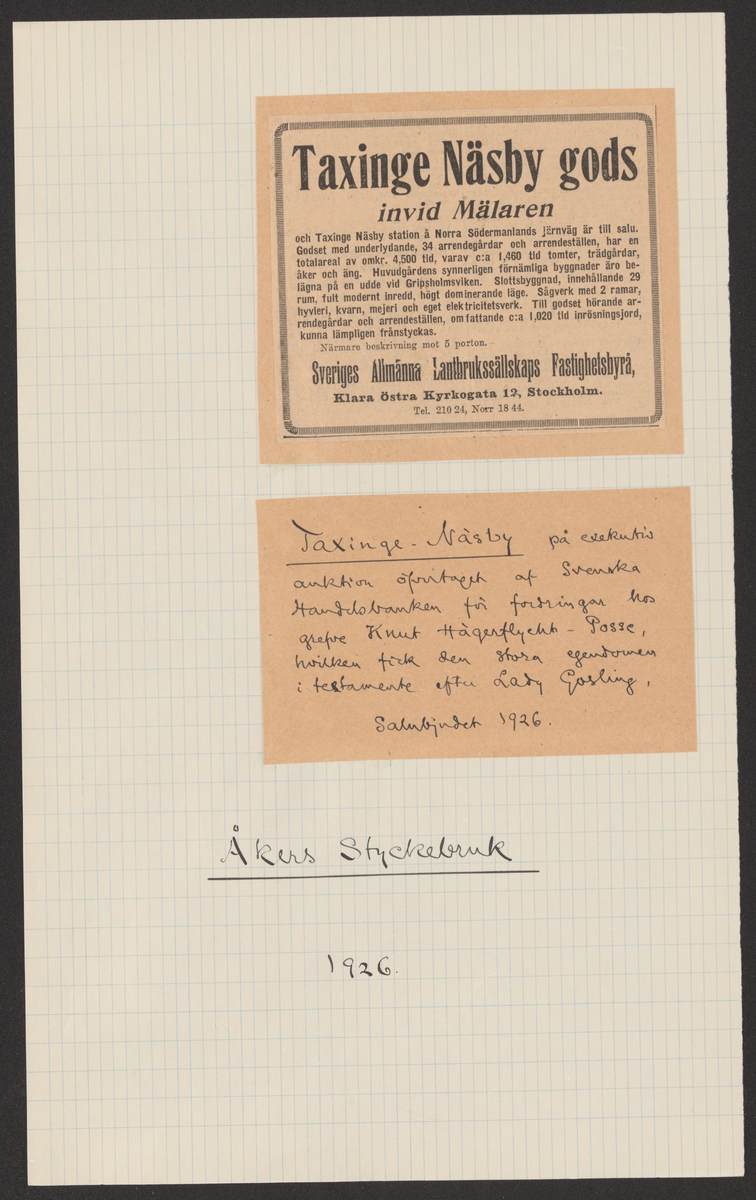 Taxinge Näsby gods
invid Mälaren
och Taxinge Näsby station å Norra Södermanlands järnväg är till salu.
Godset med underlydande, 34 arrendegårdar och arrendeställen, har en
totalareal av omkr. 4,500 tld, varav c:a 1,460 tld tomter, trädgårdar,
åker och äng. Huvudgårdens synnerligen förnämliga byggnader äro be-
lägna på en udde vid Gripsholmsviken. Slottsbyggnad, innehållande 29
rum, fullt modernt inredd, högt dominerande läge. Sågverk med 2 ramar,
hyvleri, kvarn, mejeri och eget elektricitetsverk. Till godset hörande ar-
rendegårdar och arrendeställen, omfattande c:a 1,020 tld inrösningsjord,
kunna lämpligen frånstyckas.
Närmare beskrivning mot 5 porton.
Sveriges Allmänna Lantbrukssällskaps Fastighetsbyrå,
Klara östra Kyrkogata 12, Stockholm.
Tel. 210 24, Norr 18 44.
Taxinge-Näsby på exekutiv
auktion öfvertaget af Svenska
Handelsbanken för fordringar hos
grefve Knut Hägerflycht-Posse,
hvilken fick den stora egendomen
i testamente efter Lady Gosling,
Salubjudet 1926.
Åkers Styckebruk
1926.